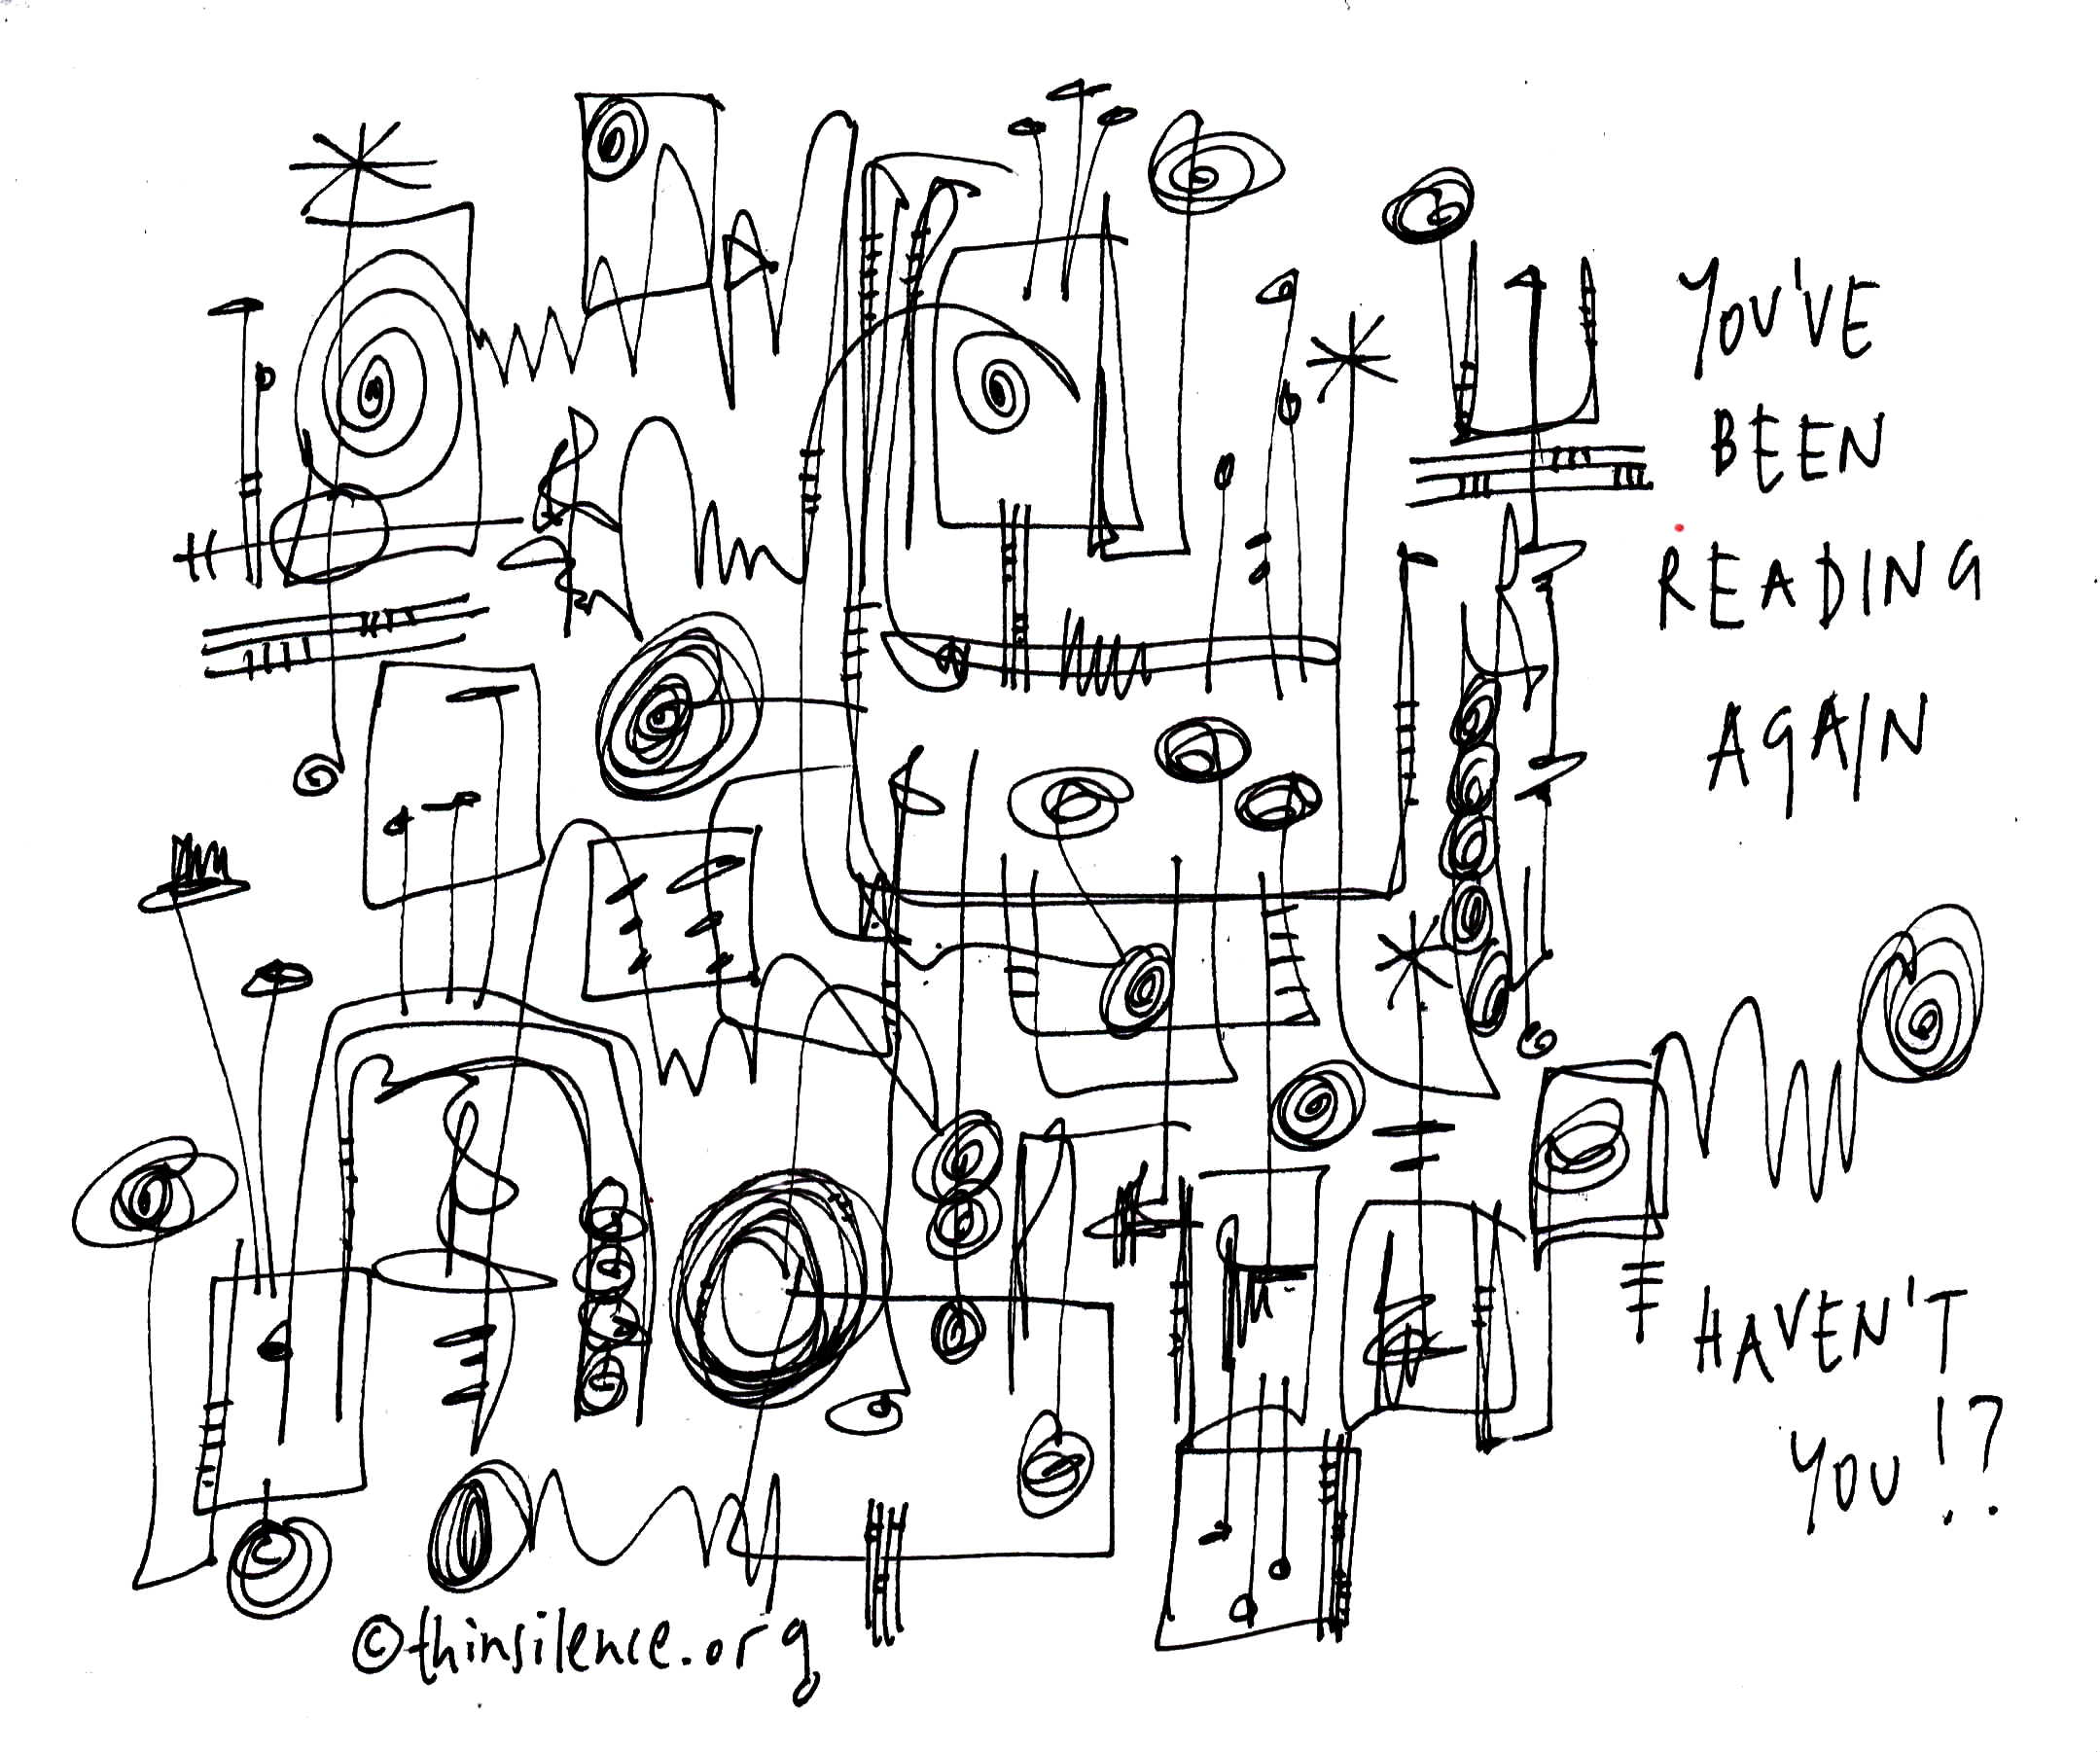 YOU'VE
BEEN
READING
AGAIN
HAVEN'T
YOU!?
©thinsilence.org